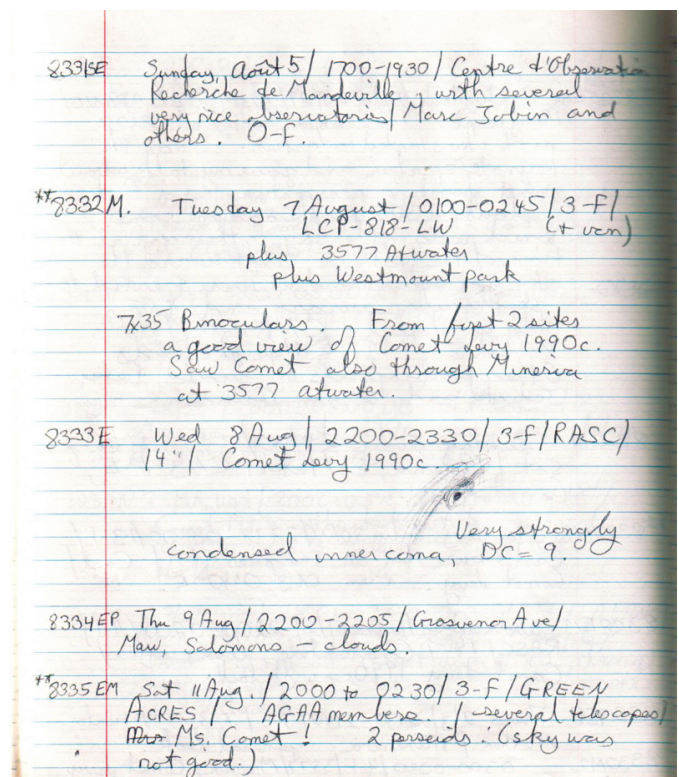 8331SE Sunday, Août 5 / 1700-1930 / Centre d'Observation
Recherche de Mandeville, with several
very nice observatories / Marc Jobin and
others. O-F.
**8332M. Tuesday 7 August / 0100-0245 / 3-F /
LCP-818-LW (+ van)
plus 3577 Atwater
plus Westmount park
7x35 Binoculars. From first 2 sites
a good view of Comet Levy 1990c.
Saw Comet also through Minerva
at 3577 atwater.
8333E Wed 8 Aug / 2200-2330 / 3-f / RASC /
14" / Comet Levy 1990c.
Very strongly
condensed inner coma, DC = 9.
8334EP Thu 9 Aug / 2200-2205 / Grosvenor Ave /
Maw, Solomons - clouds.
**8335EM Sat 11 Aug. / 2000 to 0230 / 3-F / GREEN
ACRES / AGAA members. / several telescopes /
Ms. Comet! 2 perseids. (sky was
not good.)